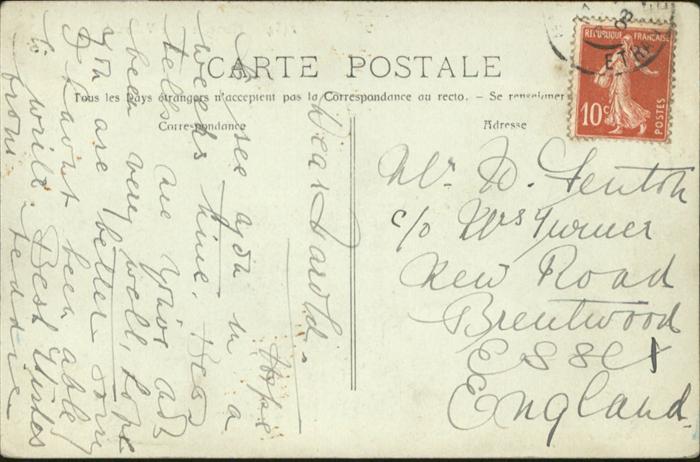 CARTE POSTALE
Tous les Pays étrangers n'acceptent pas la Correspondance au recto. — Se renseigner
Correspondance
Adresse
REPUBLIQUE FRANÇAISE
10c
POSTES
Dear Harold.
Hope
to see you in a
weeks time.
tells me you've
been very well, hope
you are better. Sorry
I havnt been able
to write. Best Wishes
from Teddie
Mr. H. Fenton
c/o Mrs Turner
New Road
Brentwood
Essex
England.